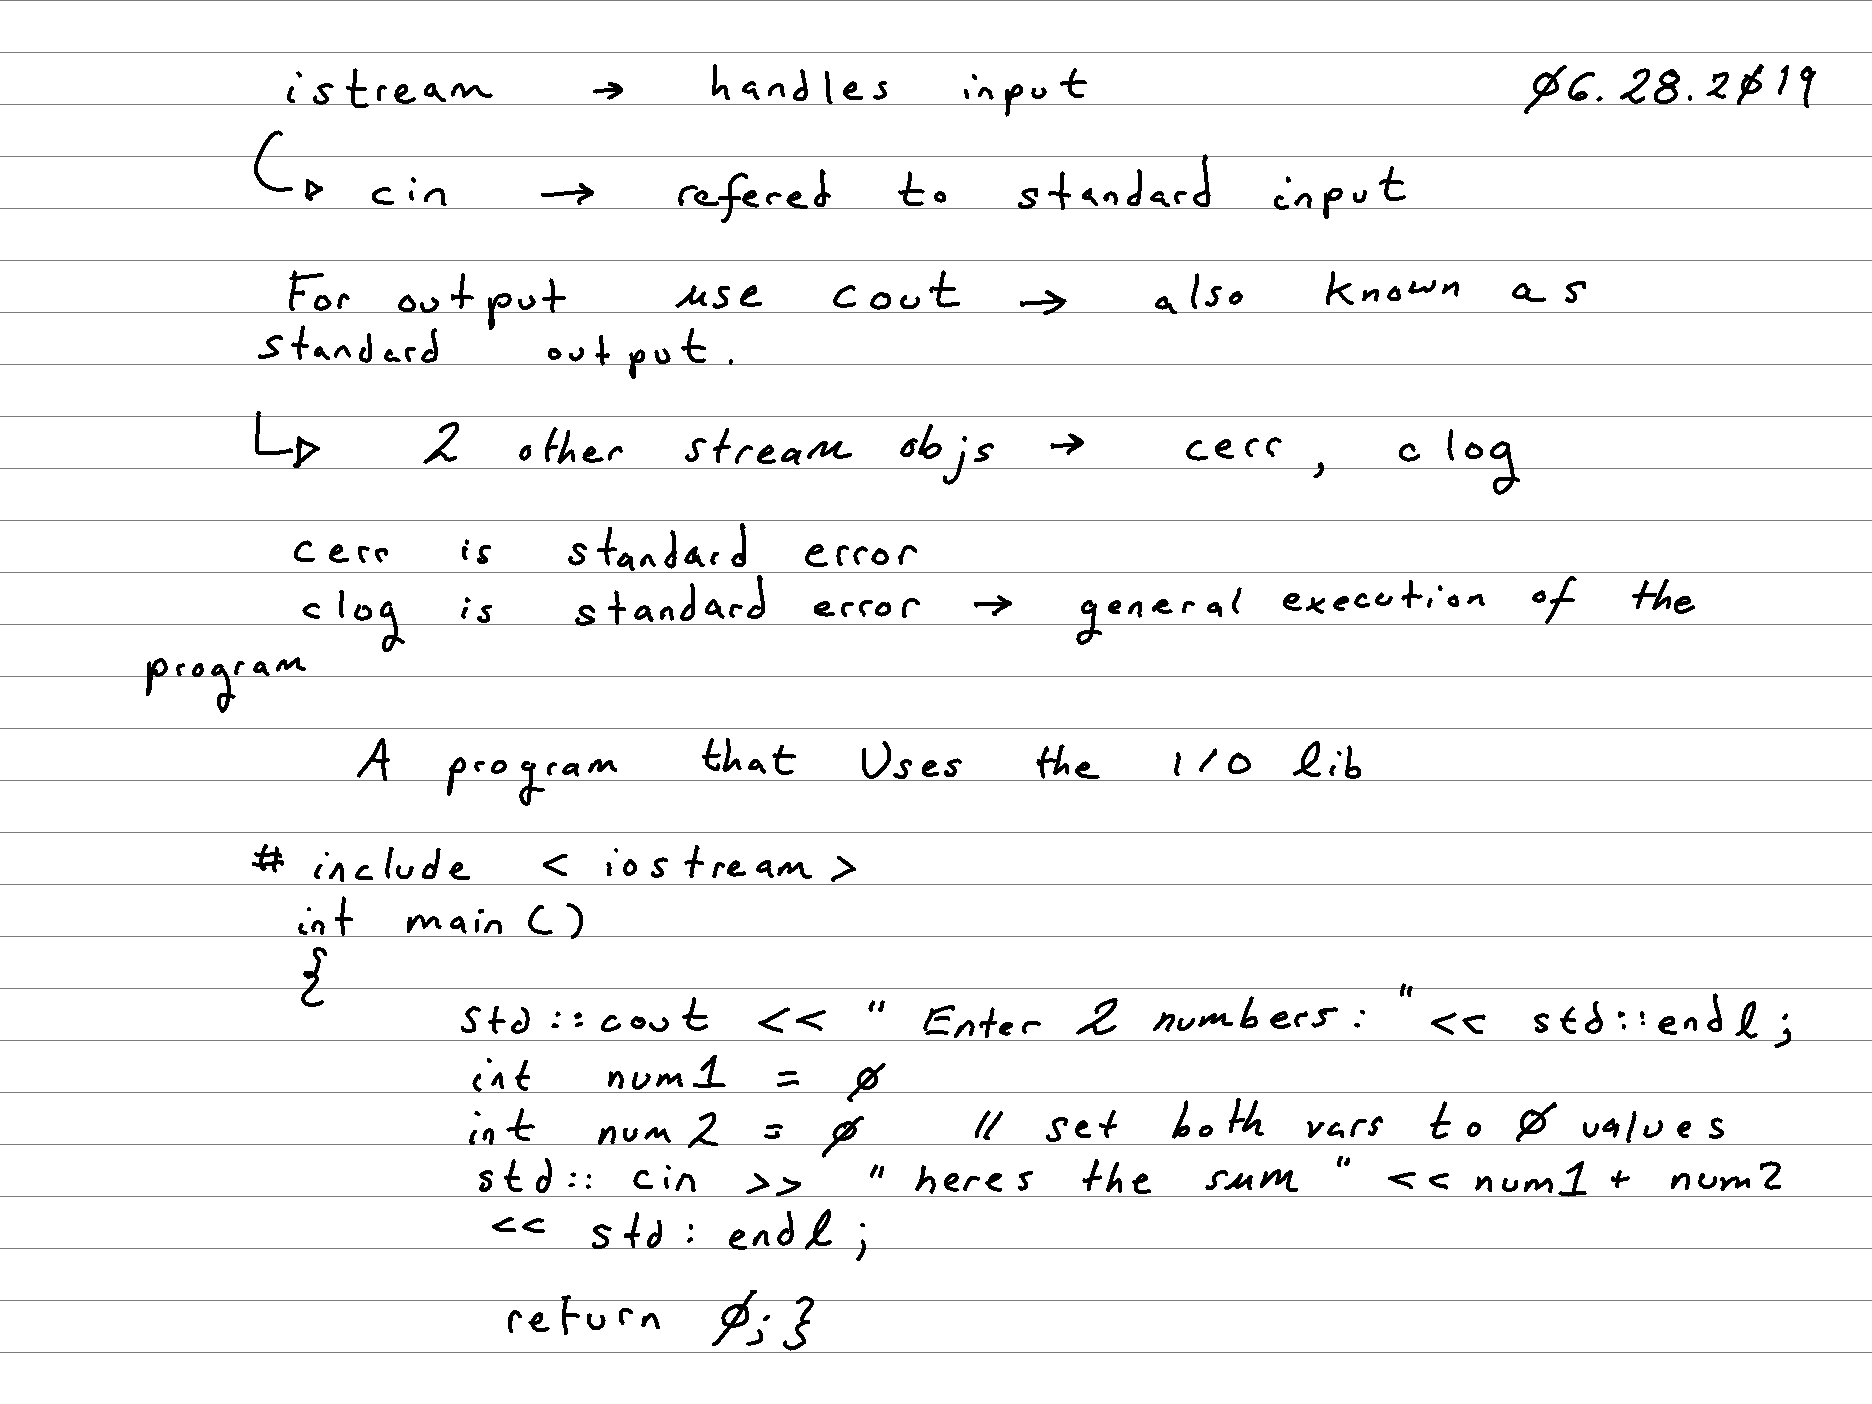 istream → handles input 06.28.2019
↳ cin → refered to standard input
For output use cout → also known as
standard output.
↳ 2 other stream objs → cerr, clog
cerr is standard error
clog is standard error → general execution of the
program
A program that Uses the I/O lib
# include < iostream >
int main ()
{
std::cout << " Enter 2 numbers: " << std::endl;
int num1 = 0
int num2 = 0 // set both vars to 0 values
std:: cin >> " heres the sum " << num1 + num2
<< std: endl;
return 0; }